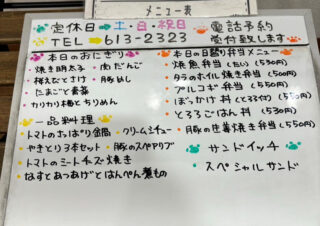 メニュー表
定休日➡土・日・祝日
TEL➡613-2323
電話予約
受付致します
本日のおにぎり
・焼き明太子 ・肉だんご
・桜えびとすけ ・豚めし
・たまごと素菜
・カリカリ梅とちりめん
一品料理
・トマトのさっぱり金局 ・クリームシチュー
・やきとり3本セット ・豚のスペアリブ
・トマトのミートチーズ焼き
・なすとあつあげとはんぺん煮もの
本日の日替り弁当メニュー
・焼魚弁当(たい)(530円)
・タラのホイル焼き弁当(550円)
・プルコギ弁当(550円)
・ぶっかけ丼(とろろ付)(550円)
・とろろごはん丼(530円)
・豚の生姜焼き弁当(550円)
サンドイッチ
・スペシャルサンド